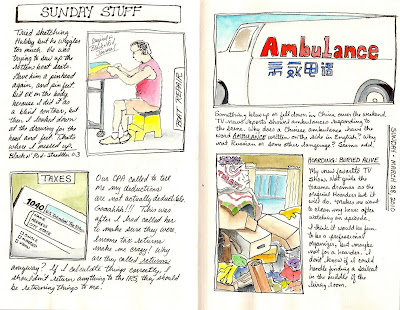 SUNDAY STUFF
Tried sketching
Hubby but he wiggles
too much. He was
trying to sew up the
rotten boat seats.
Gave him a pinhead
again, and pin feet.
Did OK on the body
because I did it as
a blind contour, but
then I looked down
at the drawing for the
head and feet. That's
where I messed up.
BOAT REPAIR
TAXES
1040
Our CPA called to tell
me my deductions
are not actually deductible.
This was
after I had called her
to make sure they were.
Income tax returns
make me crazy! Why
are they called returns
anyway? If I calculate things correctly, I
shouldn't return anything to the IRS, they should
be returning things to me.
Ambulance
Something blew up or fell down in China over the weekend.
TV news reports showed ambulances responding to
the scene. Why does a Chinese ambulance have the
word AMBULANCE written on the side in English? Why
not Russian or some other language? Seems odd.
HOARDING: BURIED ALIVE
My new favorite TV
show. Not quite the
trauma dramas as the
original Hoarders but it
will do. Makes me want
to clean my house after
watching an episode.
I think it would be fun
to be a professional
organizer, but maybe
not for a hoarder. I
don't know if I could
handle finding a
in the middle of the
living room.
SUNDAY • MARCH 28, 2010